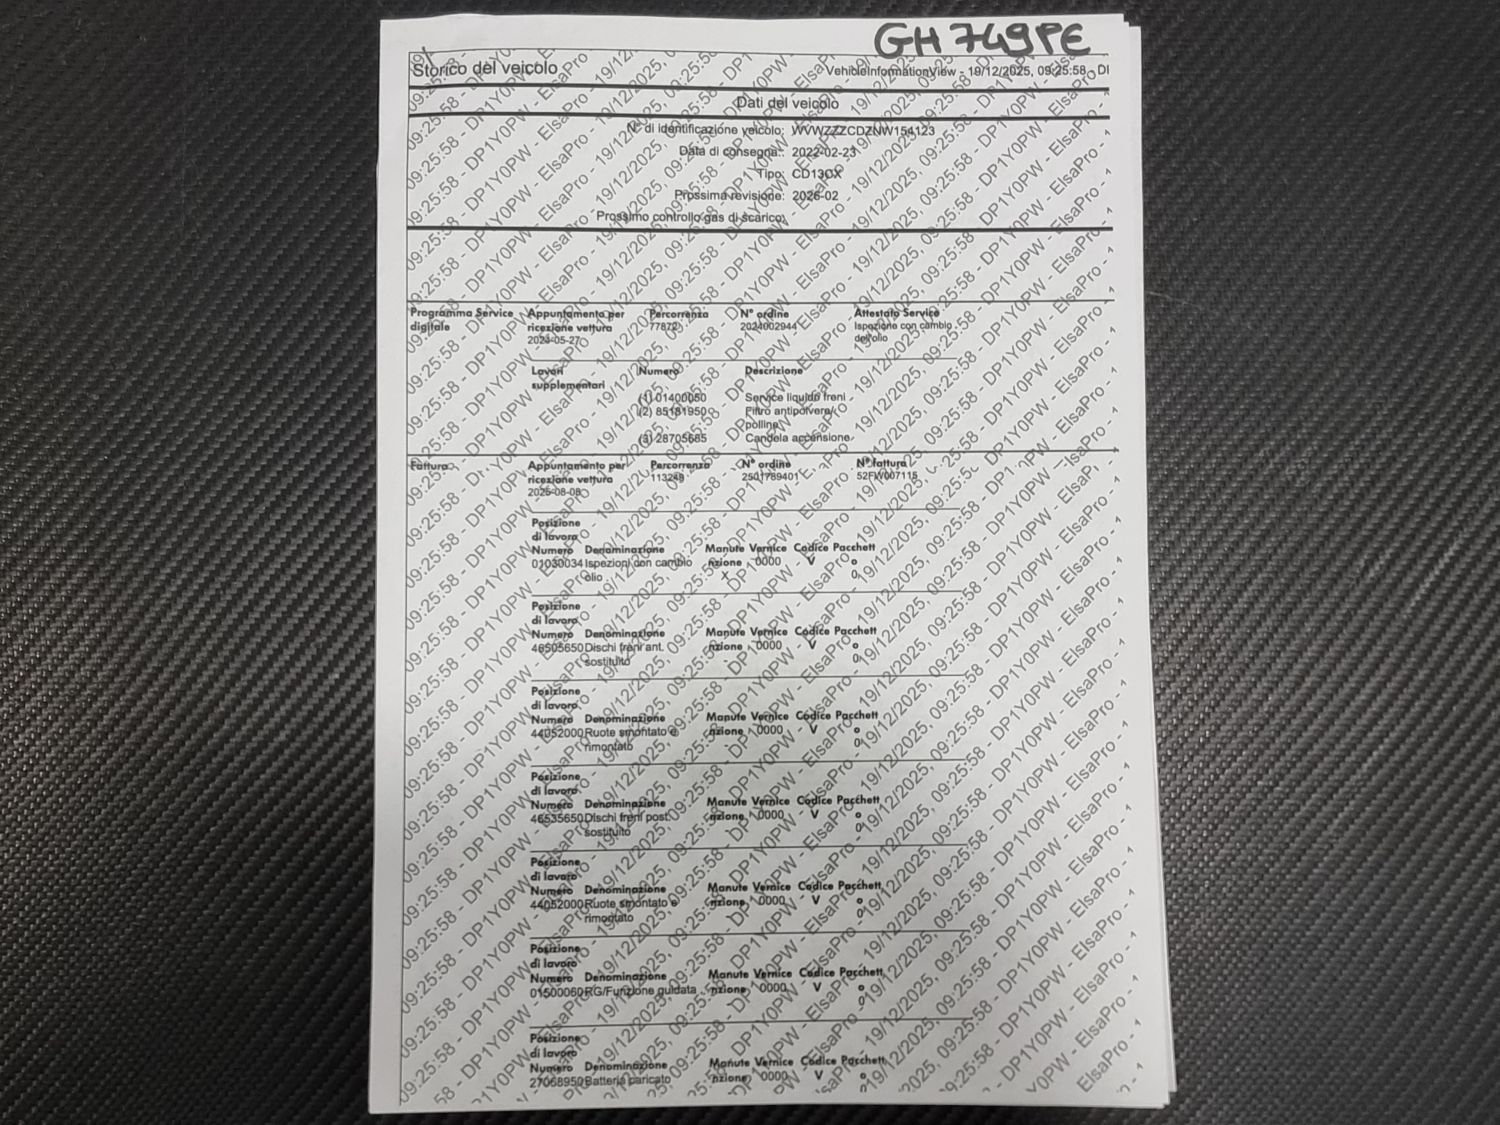 GH 749PE
Storico del veicolo
VehicleInformationView - 19/12/2025, 09:25:58 - DI
Dati del veicolo
N° di identificazione veicolo: WVWZZZCDZNW154123
Data di consegna: 2022-02-23
Tipo: CD13CX
Prossima revisione: 2026-02
Prossimo controllo gas di scarico:
Programma Service Appuntamento per Percorrenza N° ordine Attestato Service
digitale ricezione vettura 77872 2024002944 Ispezione con cambio
dell'olio
Lavori Numero Descrizione
supplementari
(1) 01400050 Service liquido freni
(2) 85181950 Filtro antipolvere/
polline
(3) 28705685 Candela accensione
Fattura Appuntamento per Percorrenza N° ordine N° fattura
ricezione vettura 113249 2501789401 52FW007115
2025-08-08
Posizione
di lavoro
Numero Denominazione Manute Vernice Codice Pacchett
01030034 Ispezioni con cambio nzione 0000 V o
olio X 0
Posizione
di lavoro
Numero Denominazione Manute Vernice Codice Pacchett
46505650 Dischi freni ant. nzione 0000 V o
sostituito 0
Posizione
di lavoro
Numero Denominazione Manute Vernice Codice Pacchett
44052000 Ruote smontato e nzione 0000 V o
rimontato 0
Posizione
di lavoro
Numero Denominazione Manute Vernice Codice Pacchett
46535650 Dischi freni post. nzione 0000 V o
sostituito 0
Posizione
di lavoro
Numero Denominazione Manute Vernice Codice Pacchett
44052000 Ruote smontato e nzione 0000 V o
rimontato 0
Posizione
di lavoro
Numero Denominazione Manute Vernice Codice Pacchett
01500060 RG/Funzione guidata nzione 0000 V o
0
Posizione
di lavoro
Numero Denominazione Manute Vernice Codice Pacchett
27068950 Batteria caricato nzione 0000 V o
0
09:25:58 - DP1Y0PW - ElsaPro - 19/12/2025, 09:25:58 - DP1Y0PW - ElsaPro - 19/12/2025